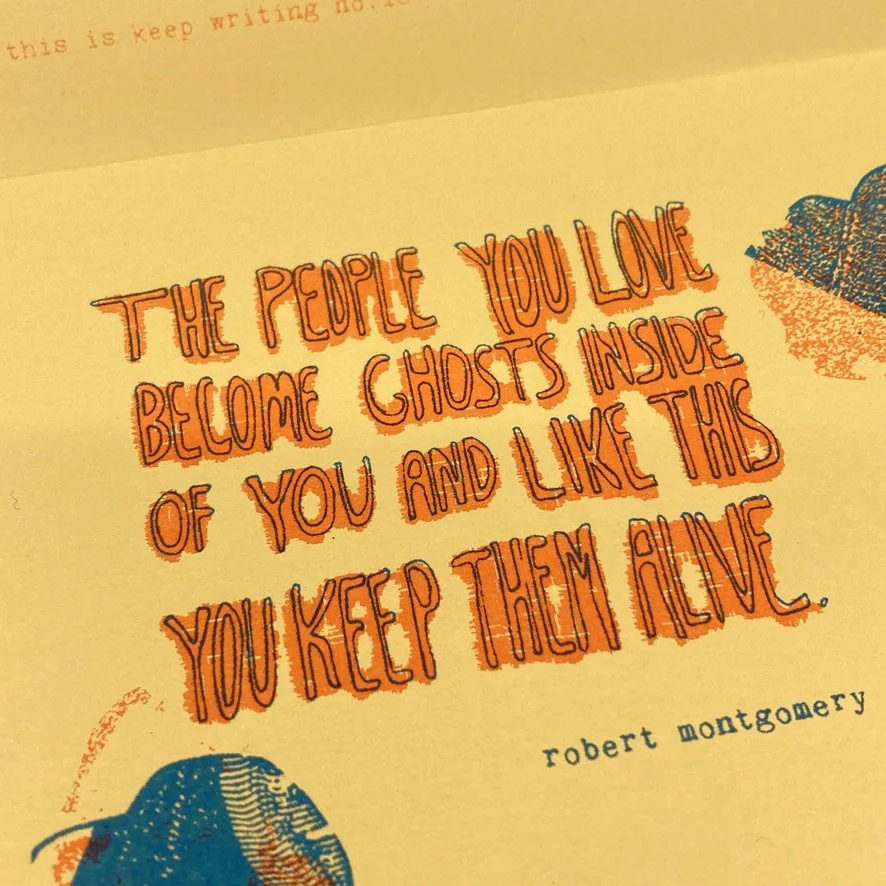 this is keep writing no.
THE PEOPLE YOU LOVE
BECOME GHOSTS INSIDE
OF YOU AND LIKE THIS
YOU KEEP THEM ALIVE.
robert montgomery